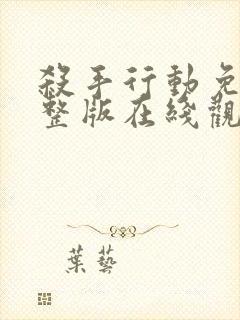 殺手行動免
整版在綫觀
葉藝